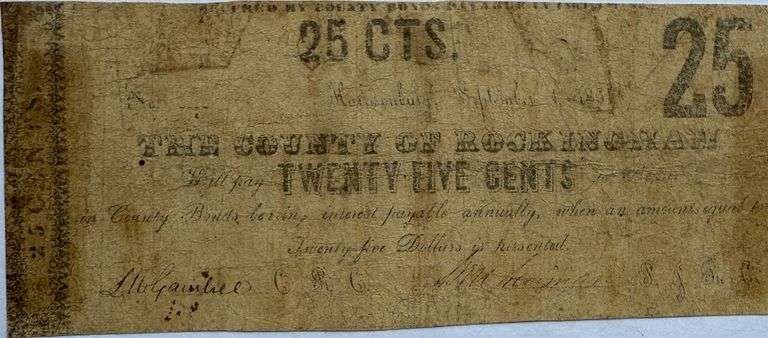 SECURED BY COUNTY BONDS PAYABLE IN
25 CTS.
25
No. Harrisonburg, September 1, 186
THE COUNTY OF ROCKINGHAM
Will pay TWENTY FIVE CENTS
in County Bonds bearing interest payable annually, when an amount equal to
Twenty-five Dollars is presented.
C. R. C. S. J. R. C.
25 CENTS